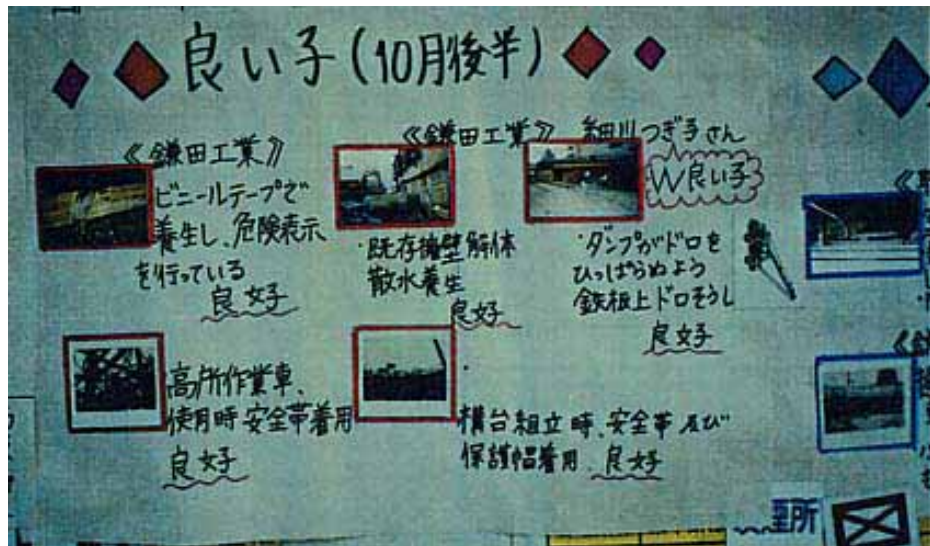 良い子(10月後半)
《鎌田工業》
ビニールテープで
養生し、危険表示
を行っている
良好
《鎌田工業》
・既存擁壁解体
散水養生
良好
細川つぎ子さん
W良い子
・ダンプがドロを
ひっぱらぬよう
鉄板上ドロそうじ
良好
高所作業車、
使用時安全帯着用
良好
構台組立時、安全帯及び
保護帽着用 良好